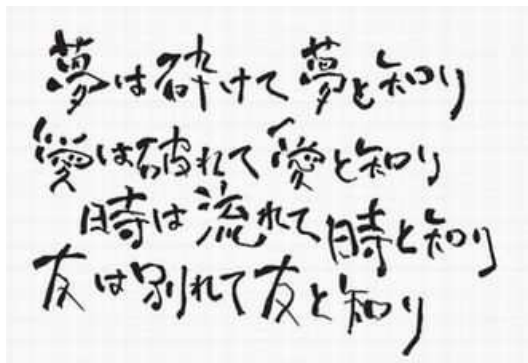 夢は砕けて夢と知り
愛は破れて愛と知り
時は流れて時と知り
友は別れて友と知り